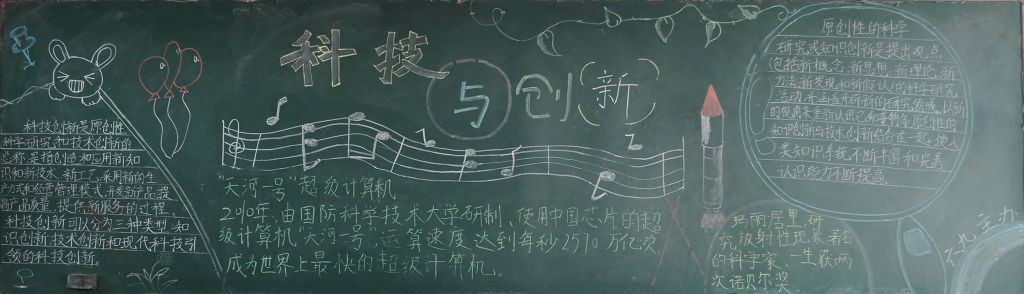 科技与创新
科技创新是原创性
科学研究和技术创新的
总称,是指创造和应用新知
识和新技术、新工艺,采用新的生
产方式和经营管理模式,开发新产品,提
高产品质量,提供新服务的过程。
科技创新可以分为三种类型:知
识创新,技术创新和现代科技引
领的科技创新。
"天河一号"超级计算机
2010年,由国防科学技术大学研制、使用中国芯片的超
级计算机"天河一号",运算速度达到每秒2570万亿次,
成为世界上最快的超级计算机。
原创性的科学
研究或知识创新是提出新观点
(包括新概念、新思想、新理论、新
方法、新发现和新假设)的科学研究
活动,并
的视角来重新认识已知事物。原创性的
知识创新与技术创新结合在一起,使人
类知识系统不断丰富和完善,
认识能力不断提高,
玛丽居里,研
究放射性现象著名
的科学家,一生获两
次诺贝尔奖。
主办